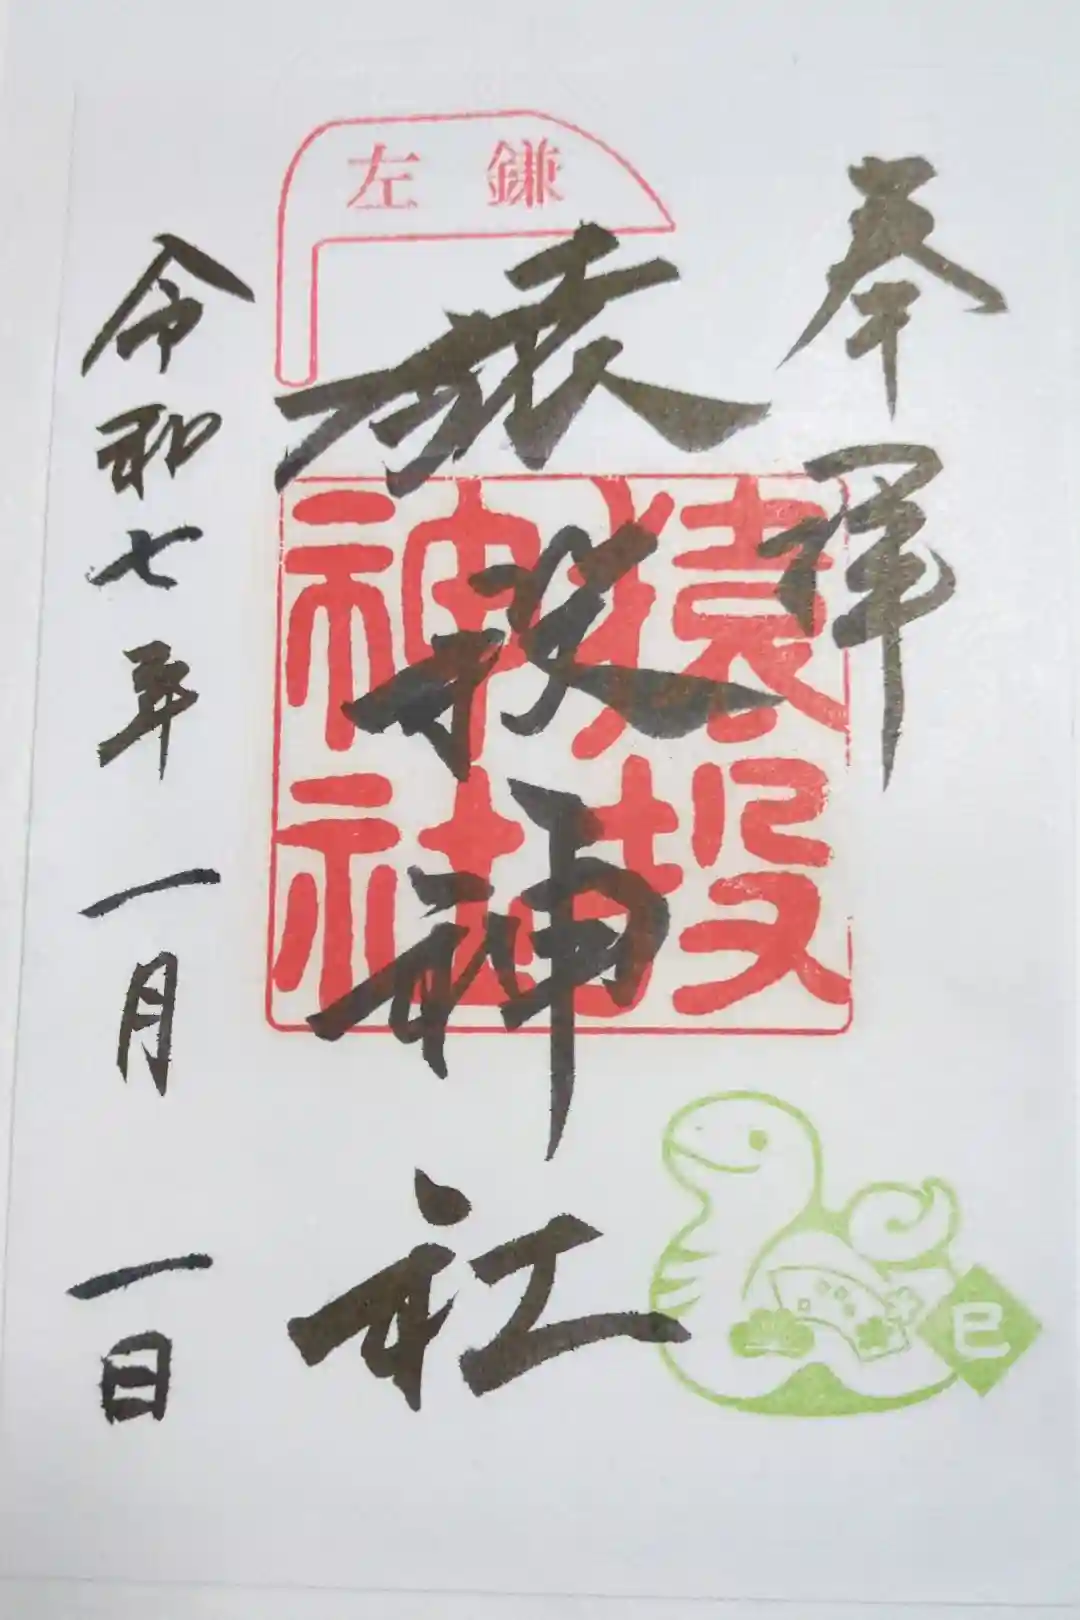 奉拝
左鎌
猿投神社
猿投
神社
令和七年一月一日
巳